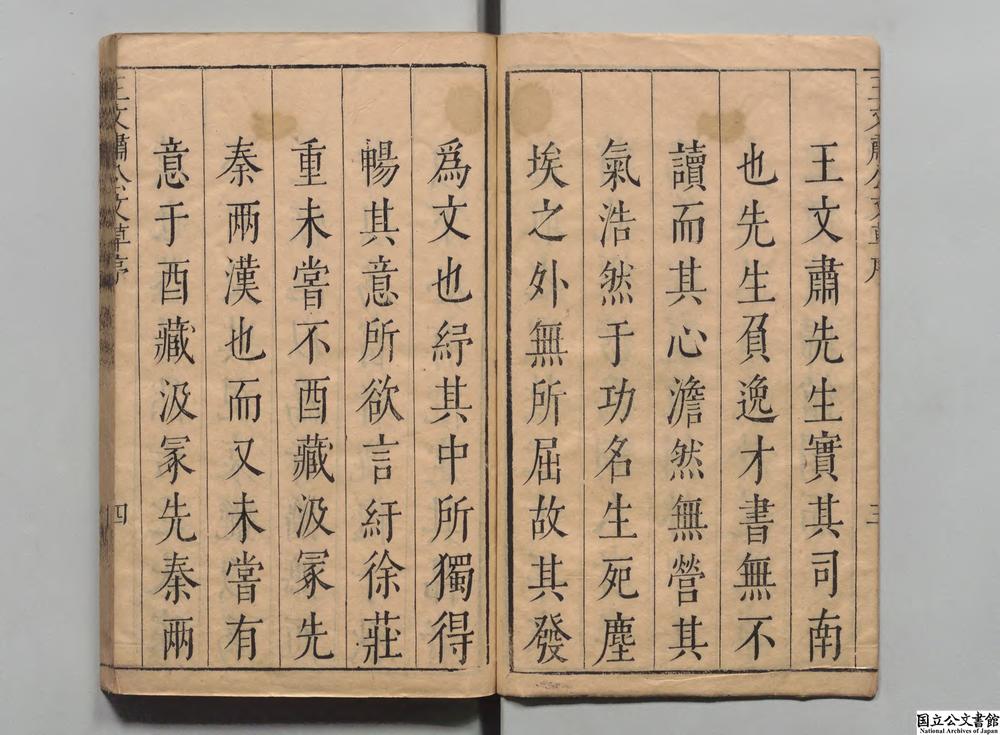 王文肅先生實其司南
也先生負逸才書無不
讀而其心澹然無營其
氣浩然于功名生死塵
埃之外無所屈故其發
三
爲文也紓其中所獨得
暢其意所欲言紆徐莊
重未嘗不酉藏汲冢先
秦兩漢也而又未嘗有
意于酉藏汲冢先秦兩
王文肅公文草序
四
国立公文書館
National Archives of Japan